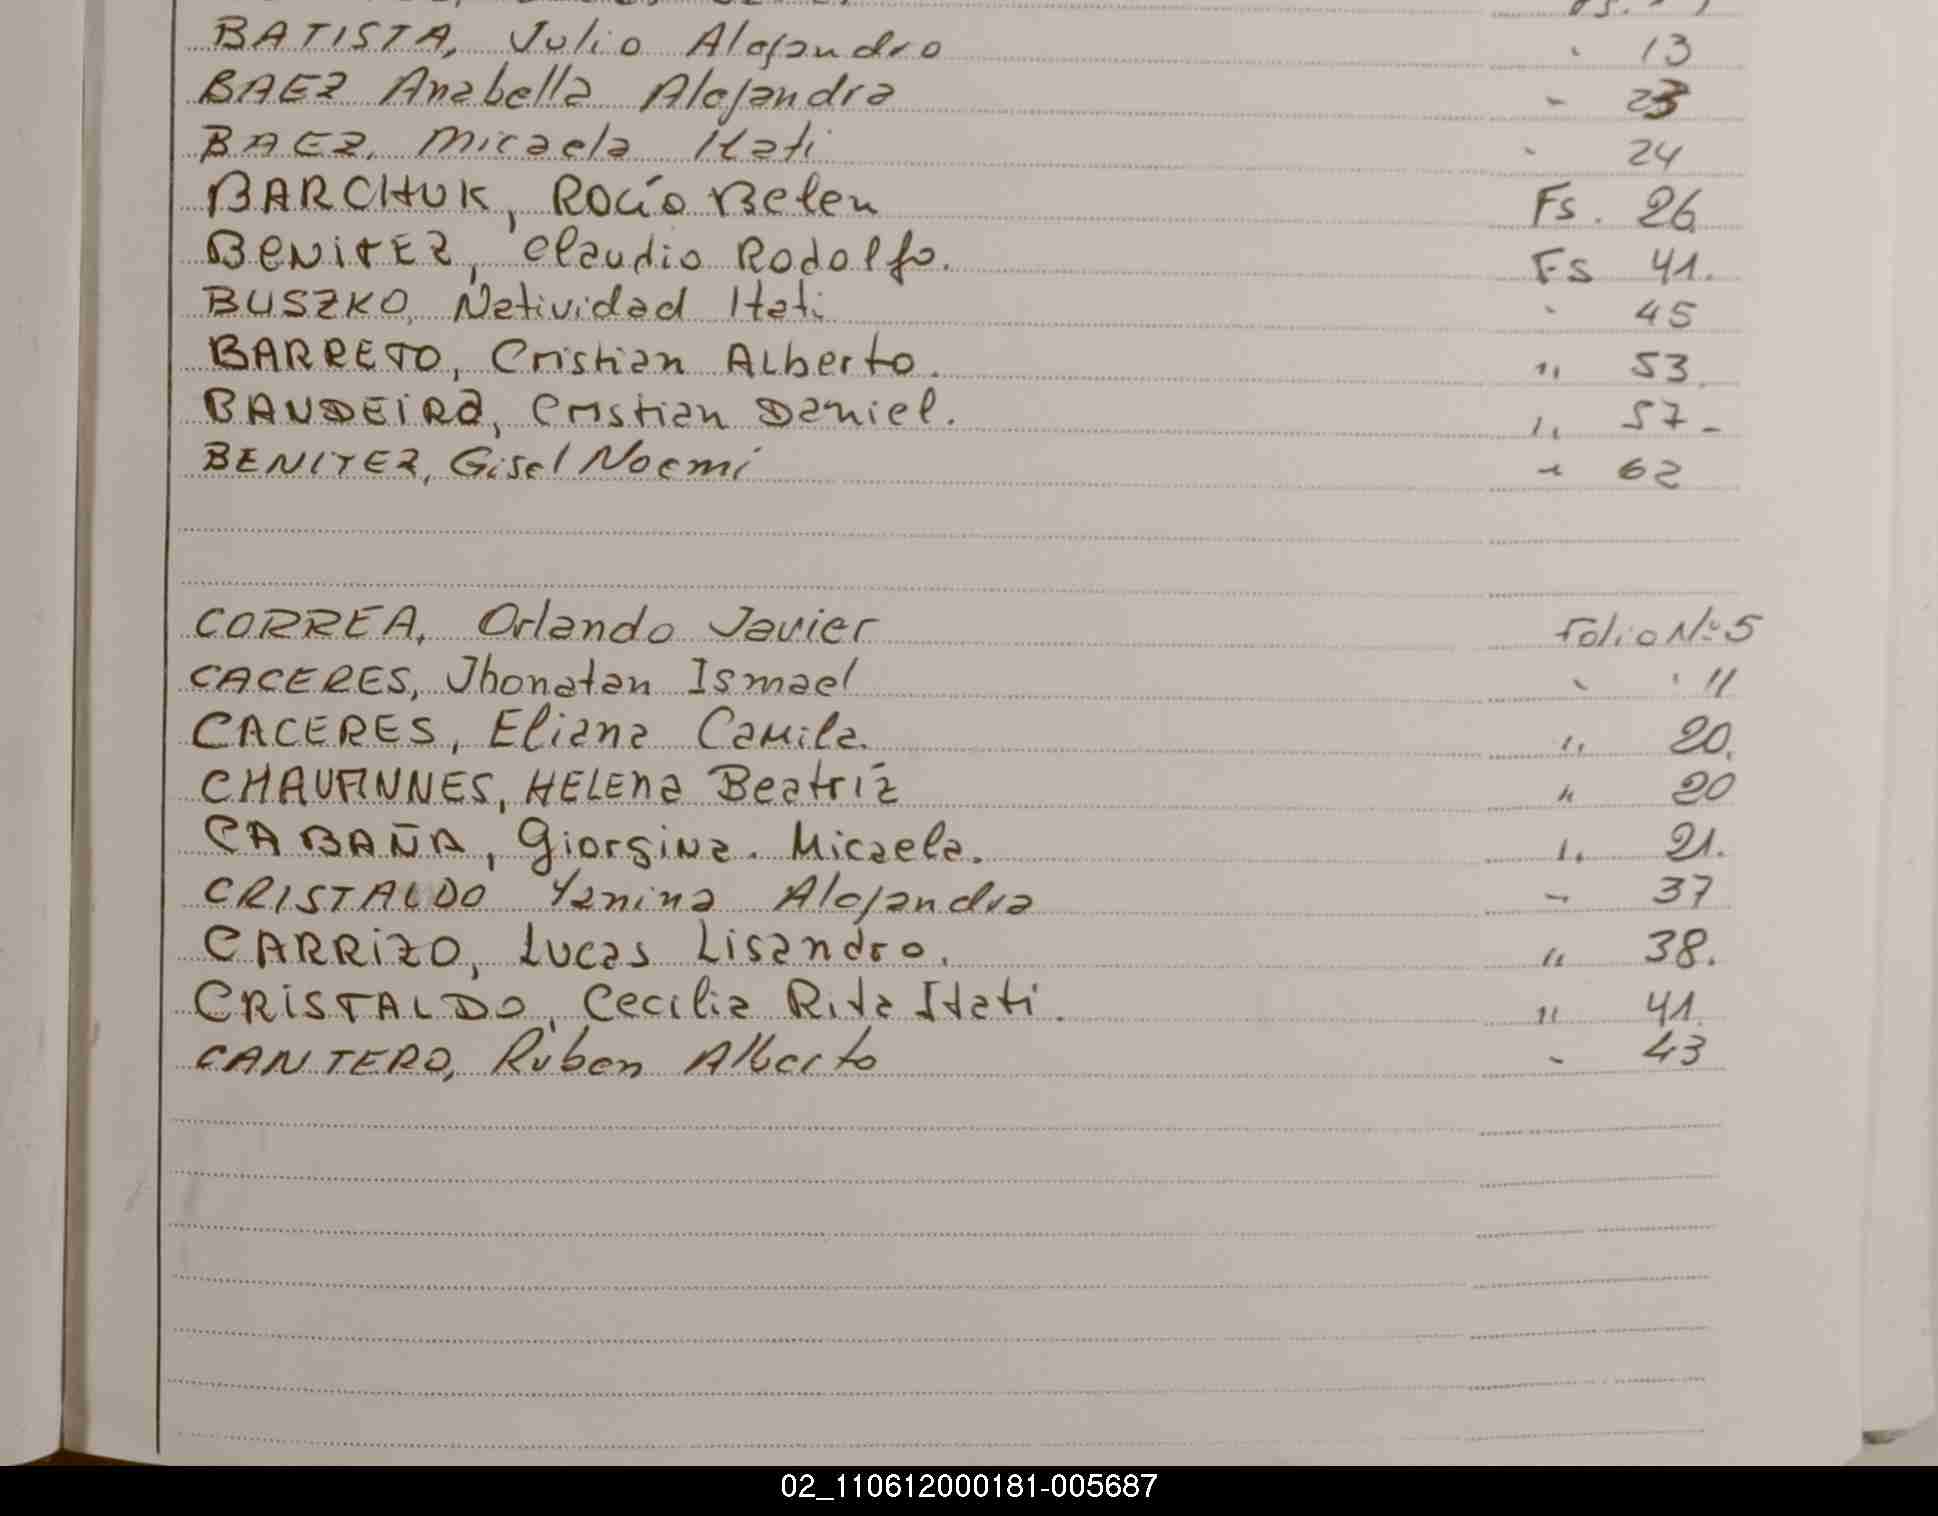 BATISTA, Julio Alejandro " 13
BAEZ Anabella Alejandra " 23
BAEZ, Micaela Itati " 24
BARCHUK, Rocío Belen Fs. 26
BENITEZ, Claudio Rodolfo. Fs 41.
BUSZKO, Natividad Itati " 45
BARRETO, Cristian Alberto. " 53.
BANDEIRA, Cristian Daniel. " 57-
BENITEZ, Gisel Noemi " 62
CORREA, Orlando Javier Folio Nº 5
CACERES, Jhonatan Ismael " " 11
CACERES, Eliana Camila. " 20.
CHAVANNES, HELENa Beatriz " 20
CABAÑA, Giorgina. Micaela. " 21.
CRISTALDO Yanina Alejandra " 37
CARRIZO, Lucas Lisandro. " 38.
CRISTALDO, Cecilia Rita Itati. " 41.
CANTERO, Ruben Alberto " 43
02_110612000181-005687